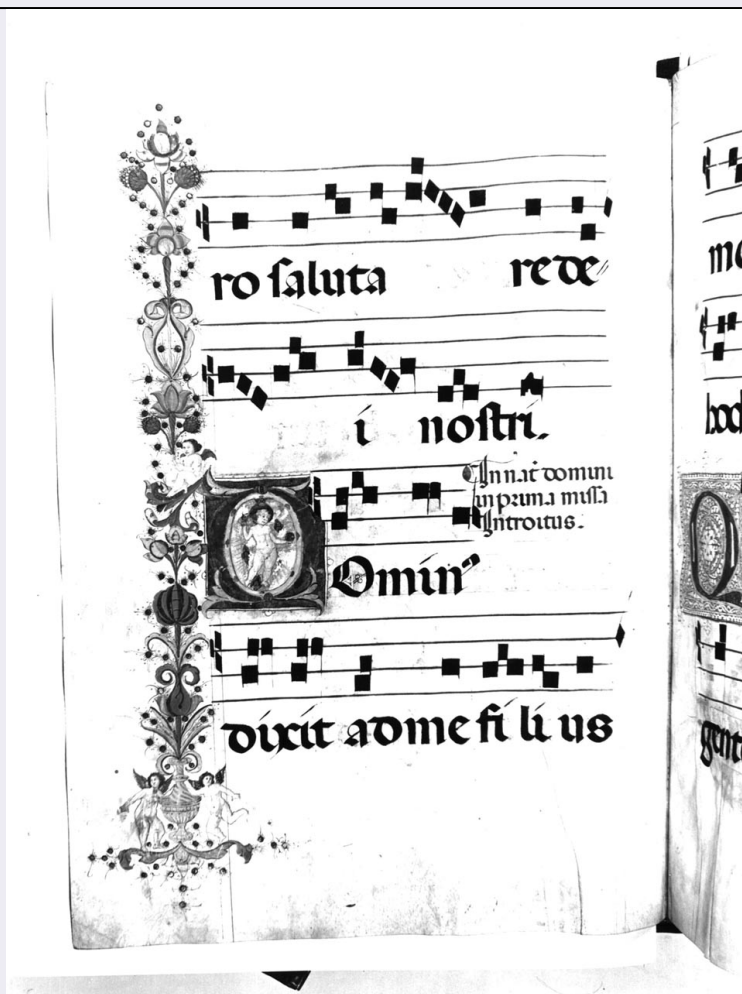 ro saluta rede
i nostri.
In nat̄ domini
in prima missa
Introitus.
Domin⁹
dixit ad me filius